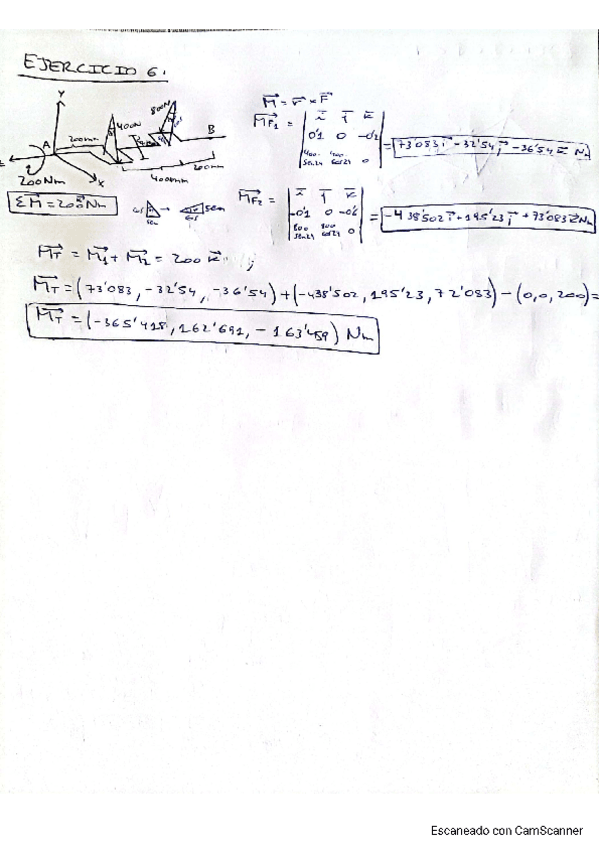 EJERCICIO 6.
Y
800N
400N
200mm
A
B
X
200Nm
400mm
200mm
ΣM⃗ = 200k⃗ Nm
cos
sen
sen
cos
M⃗ = r⃗ × F⃗
M⃗F₁ = | i⃗ j⃗ k⃗ |
0'1 0 -0'2
400· sen24 400· cos24 0
= 73'083 i⃗ - 32'54 j⃗ - 36'54 k⃗ Nm
M⃗F₂ = | i⃗ j⃗ k⃗ |
-0'1 0 -0'6
800 sen24 800 cos24 0
= -438'502 i⃗ + 195'23 j⃗ + 73'083 k⃗ Nm
M⃗T = M⃗₁ + M⃗₂ = 200 k⃗ ;
M⃗T = (73'083, -32'54, -36'54) + (-438'502, 195'23, 72'083) - (0,0,200) =
M⃗T = (-365'418, 162'691, -163'459) Nm
Escaneado con CamScanner